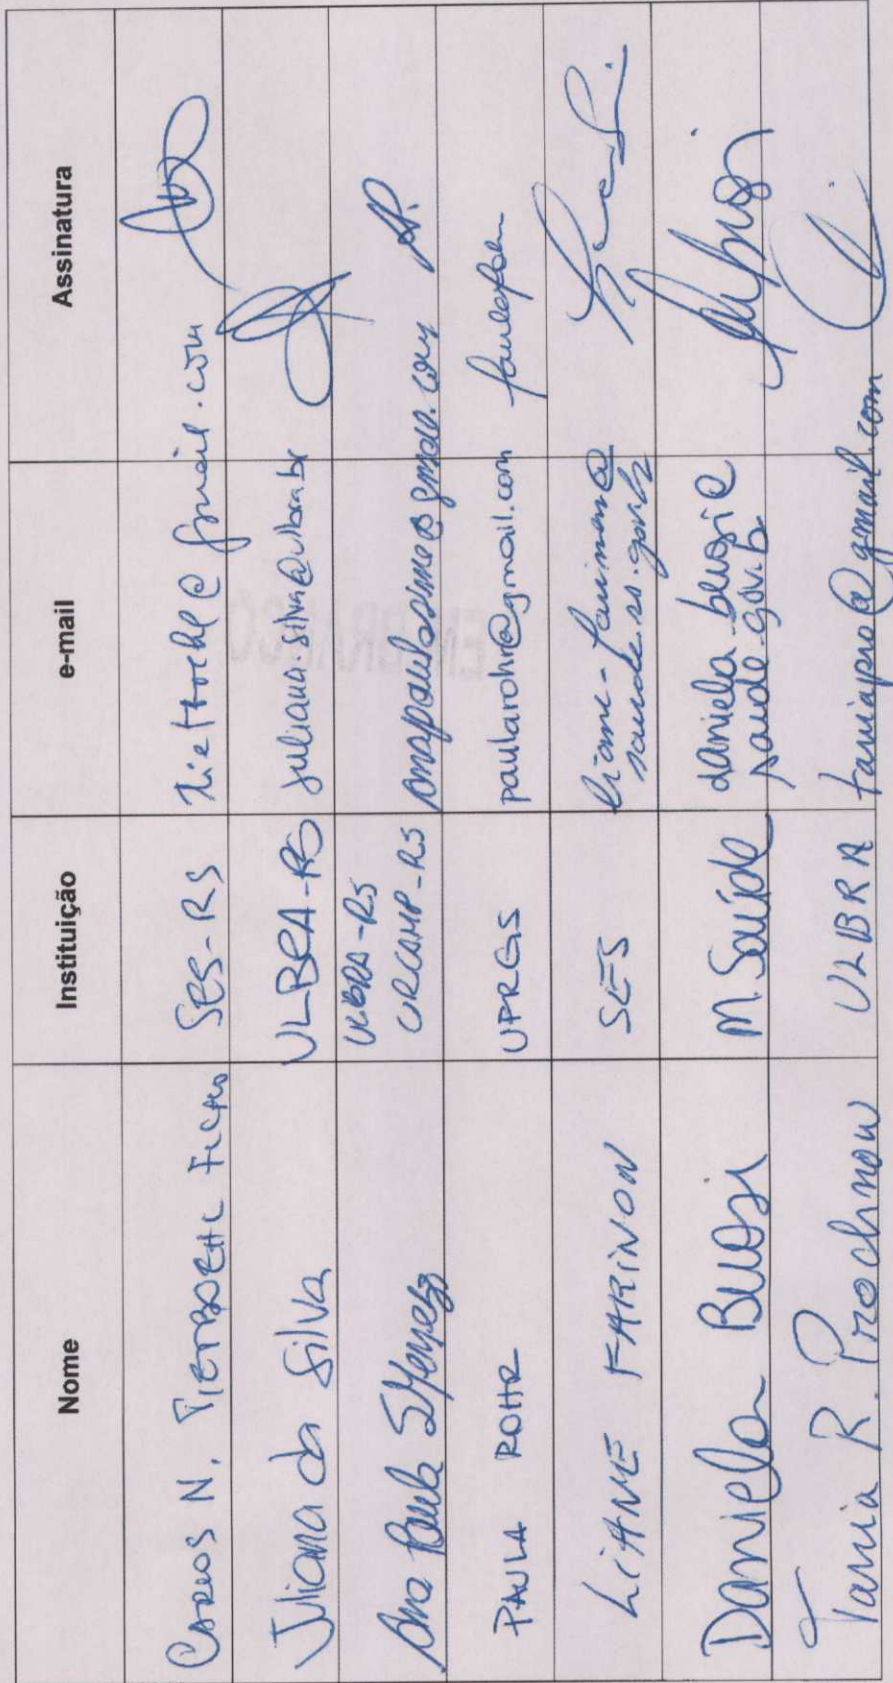 Nome Instituição e-mail Assinatura
Carlos N. Pietroehl Filho SES-RS
Juliana da Silva ULBRA-RS juliana.silva@ulbra.br
Ana Paula ULBRA-RS
URCAMP-RS
PAULA ROHR UFRGS paularohr@gmail.com
LIANE FARINON SES liane-farinon@
saude.rs.gov.br
Daniela Buosi M. Saúde daniela.buosi@
saude.gov.br
Tania R. Prochnow ULBRA taniapro@gmail.com
EM BRANCO